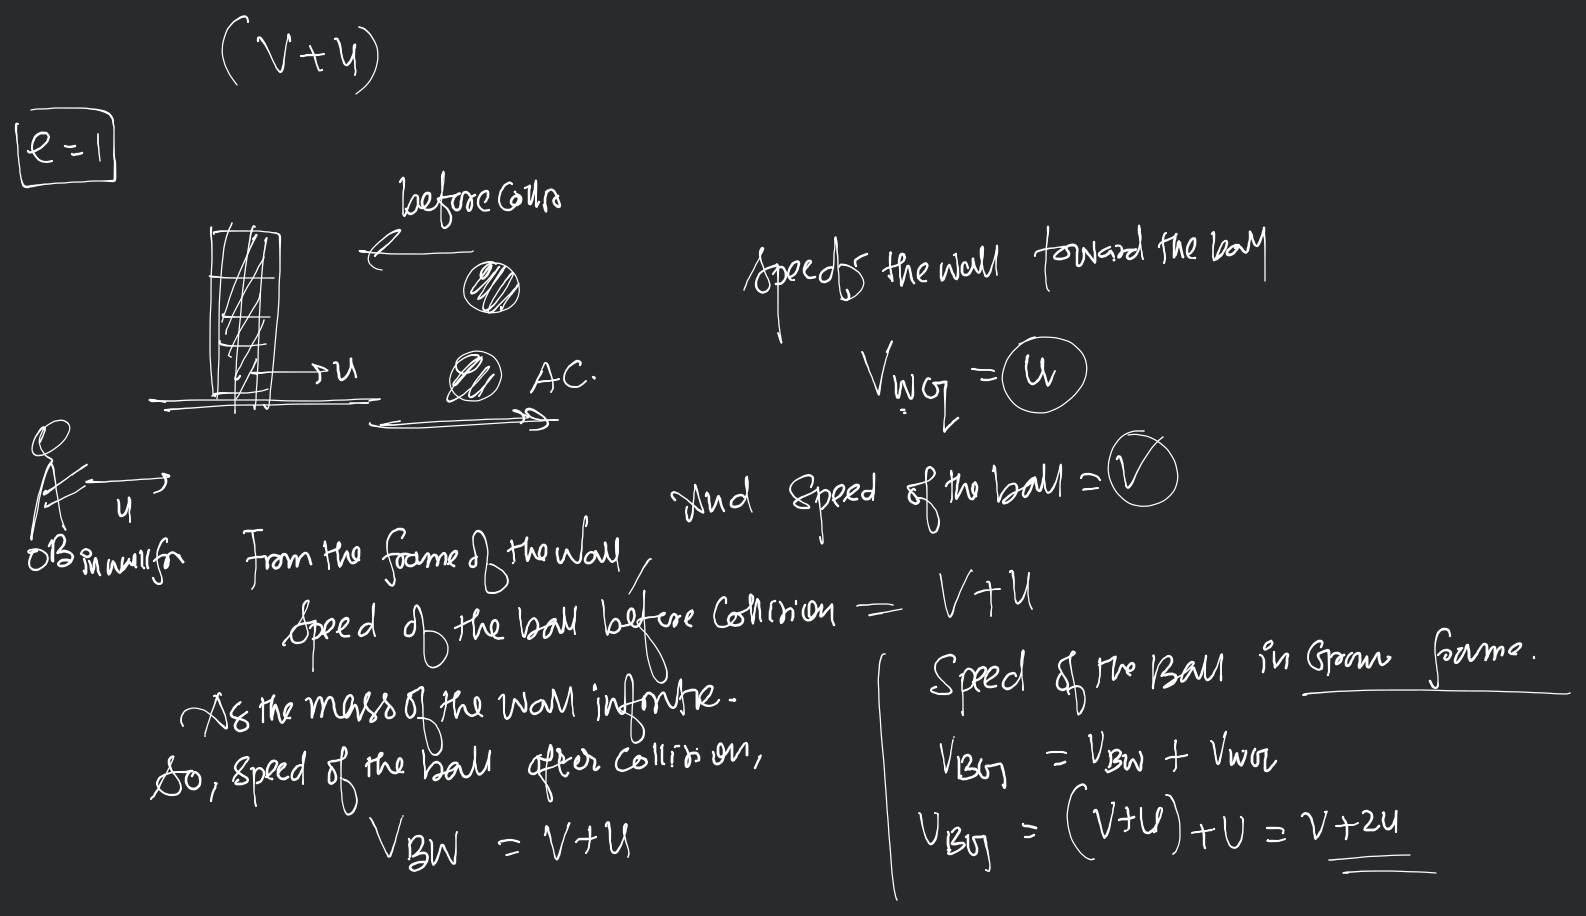 (V+u)
e=1
before Collis
u
A.C.
u
OB in wall fr
Speed of the wall toward the ball
V_WG = u
And Speed of the ball = V
From the frame of the wall,
Speed of the ball before Collision = V+u
As the mass of the wall infinite.
So, speed of the ball after collision,
V_BW = V+u
Speed of the Ball in Groun frame.
V_BG = V_BW + V_WG
V_BG = (V+u)+U = V+2u